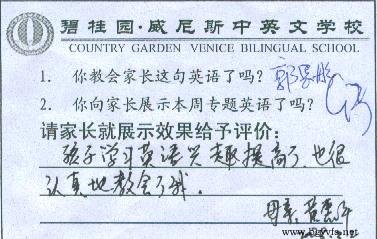 碧桂园·威尼斯中英文学校
COUNTRY GARDEN VENICE BILINGUAL SCHOOL
1. 你教会家长这句英语了吗?
2. 你向家长展示本周专题英语了吗?
请家长就展示效果给予评价:
孩子学习英语兴趣提高了,也很
认真地教会了我。
母亲